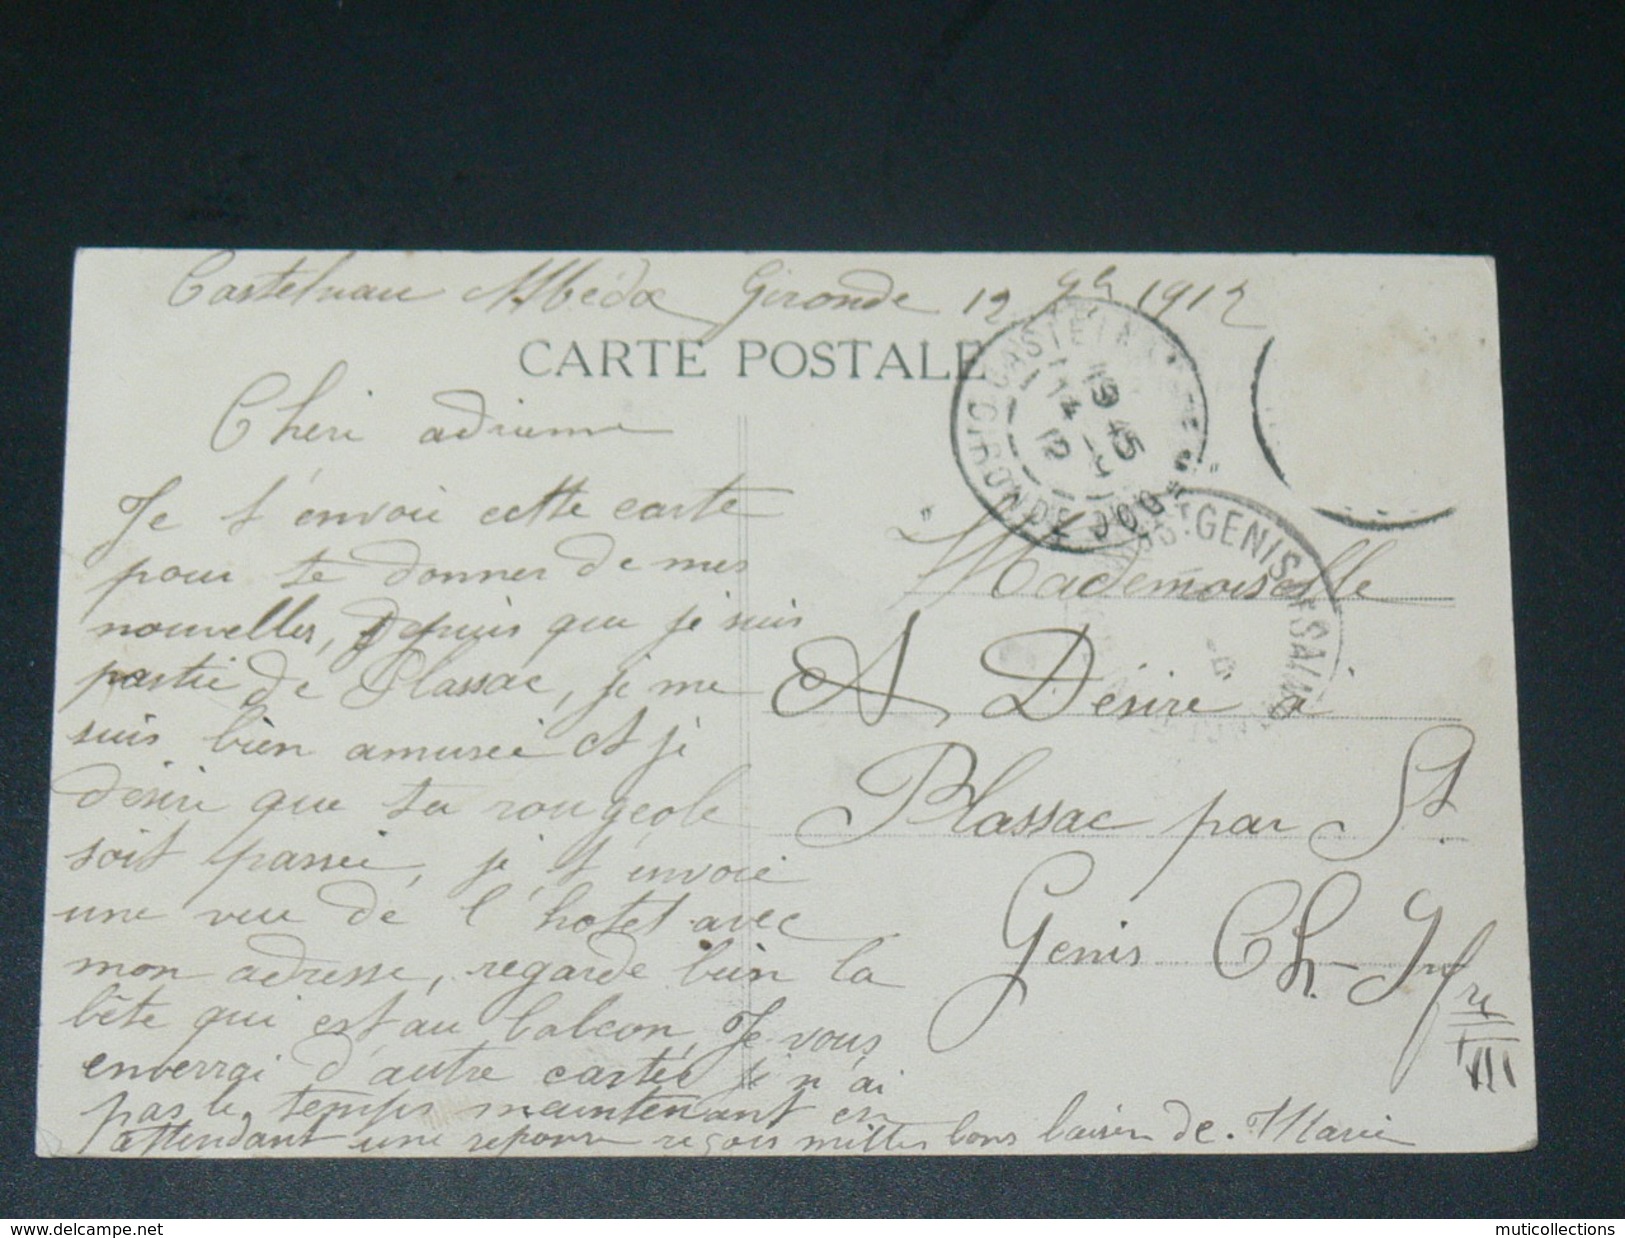 Castelnau Médoc Gironde 12 1912
CARTE POSTALE
Cheri adrienne
Je t'envoie cette carte
pour te donner de mes
nouvelles, Depuis que je suis
partie de Plassac, je me
suis bien amusée et je
désire que ta rougeole
soit passée, je t'envoie
une vue de l'hotel avec
mon adresse, regarde bien la
bête qui est au balcon, Je vous
enverrai d'autre cartes je n'ai
pas le temps maintenant en
attendant une reponse reçois milles bons baiser de. Marie
19 45
14
12
GIRONDE
" Mademoiselle "
A Désiré à
Plassac par St.
Genis Ch- Infre
ST-GENIS-DE-SAINT
www.delcampe.net
muticollections